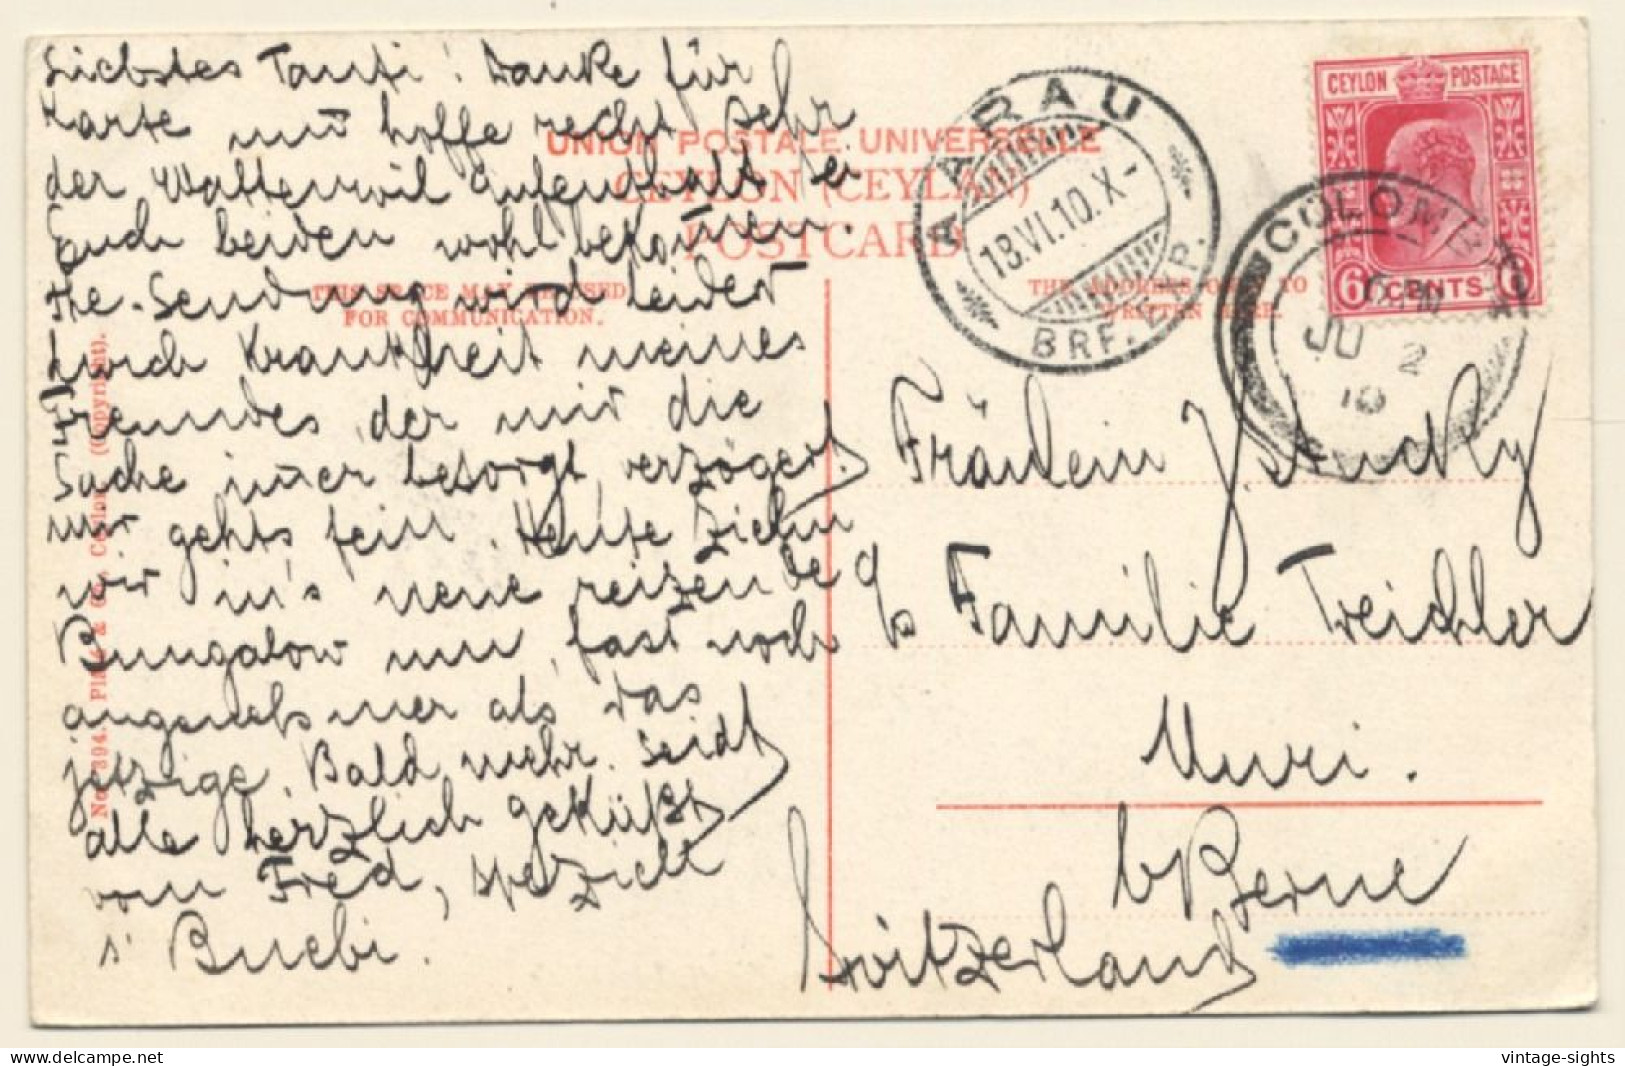 Liebstes Tanti! Danke für
Karte und hoffe recht sehr
der Wattenwil Aufenthalt sei
Euch beiden wohl bekommen.
The-Sendung wird leider
durch Krankheit meines
Freundes der mir die
Sache immer besorgt, verzögert.
mir gehts fein. Heute ziehn
wir in's neue reizende
Bungalow um, fast noch
angenehmer als das
jetzige. Bald mehr. Seidt
alle herzlich geküßt
vom Fred, speziell
s' Buebi.
UNION POSTALE UNIVERSELLE
CEYLON (CEYLAN)
POSTCARD
THIS SPACE MAY BE USED
FOR COMMUNICATION.
THE ADDRESS ONLY TO
WRITTEN HERE.
No. 394. Plâté & Co., Ceylon. (Copyright).
AARAU
13.VI.10.X-
BRF. EXP.
CEYLON POSTAGE
6 CENTS 6
COLOMBO
6 PM
JU 2
10
Fräulein J.
c/o Familie Treichler
Muri.
b/Berne
Switzerland
delcampe.net
vintage-sights